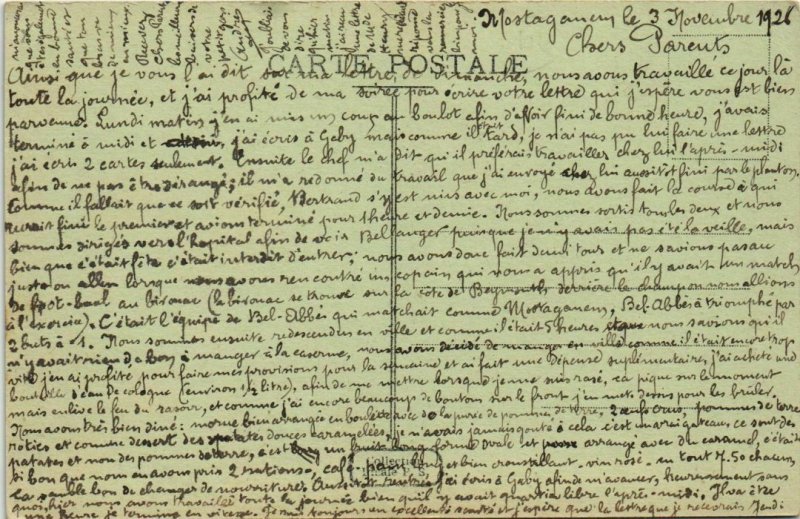 Mostaganem le 3 Novembre 1926
Chers Parents
CARTE POSTALE
Ainsi que je vous l'ai dit sur ma lettre de Dimanche, nous avons travaillé ce jour là
toute la journée, et j'ai profité de ma soirée pour écrire votre lettre qui j'espère vous est bien
parvenue. Lundi matin j'en ai mis un coup au boulot afin d'avoir fini de bonne heure, j'avais
terminé à midi et j'ai écris à Gaby mais comme il était tard, je n'ai pas pu lui faire une lettre
j'ai écris 2 cartes seulement. Ensuite le chef m'a dit qu'il préférais travailler chez lui l'après-midi
afin de ne pas être dérangé; il m'a redonné du travail que j'ai envoyé chez lui aussitot fini par le planton.
Comme il fallait que ce soit vérifié, Bertrand s'y est mis avec moi, nous avons fait la course à qui
aurait fini le premier et avions terminé pour 1 heure et demie. Nous sommes sortis tous les deux et nous
sommes dirigés vers l'hopital afin de voir Bellanger puisque je n'y avais pas été la veille, mais
bien que c'était fête c'était interdit d'entrer; nous avons donc fait demi tour et ne savions pas au
juste ou aller lorsque nous avons rencontré un copain qui nous a appris qu'il y avait un match
de foot-baal au birouac (le birouac se trouve sur la côte de derrière le champ ou nous allions
à l'exercice). C'était l'équipe de Bel-Abbès qui matchait comme Mostaganem, Bel-Abbès à triomphé par
2 buts à 1. Nous sommes ensuite redescendus en ville et comme il était 5 heures et que nous savions qu'il
n'y avait rien de bon à manger à la caserne, nous avons décidé de manger en ville comme il était encore trop
vite j'en ai profité pour faire mes provisions pour la semaine et ai fait une Dépense suplémentaire, j'ai acheté une
bouteille d'eau de cologne (environ ½ litre), afin de me mettre lorsque je me suis rasé, ca pique sur le moment
mais enlève le feu du rasoir, et comme j'ai encore beaucoup de boutons sur le front j'en mets dessus pour les brûler.
Nous avons très bien diné: morue bien arrangée en boulette avec de la purée de pomme de terre, 2 œufs crus, pommes de terre
roties et comme desert des patates douces caramelées, je n'avais jamais gouté à cela c'est marei gateaux ce sont des
patates et non des pommes de terre, c'est un fruit long forme ovale et arrangé avec du caramel, c'était
si bon que nous en avons pris 2 rations, café et bien croustillant. vin rosé. en tout 7.50 chacun,
ca semble bon de changer de nourriture. Aussitôt rentré j'ai écris à Gaby afin de m'avancer, heureusement sans
quoi, hier nous avons travaillé toute la journée bien qu'il y avait quartier libre l'après-midi. Il va être
une heure je termine en vitesse. Je suis toujours en excellente santé et j'espère que la lettre que je recevrais Jeudi